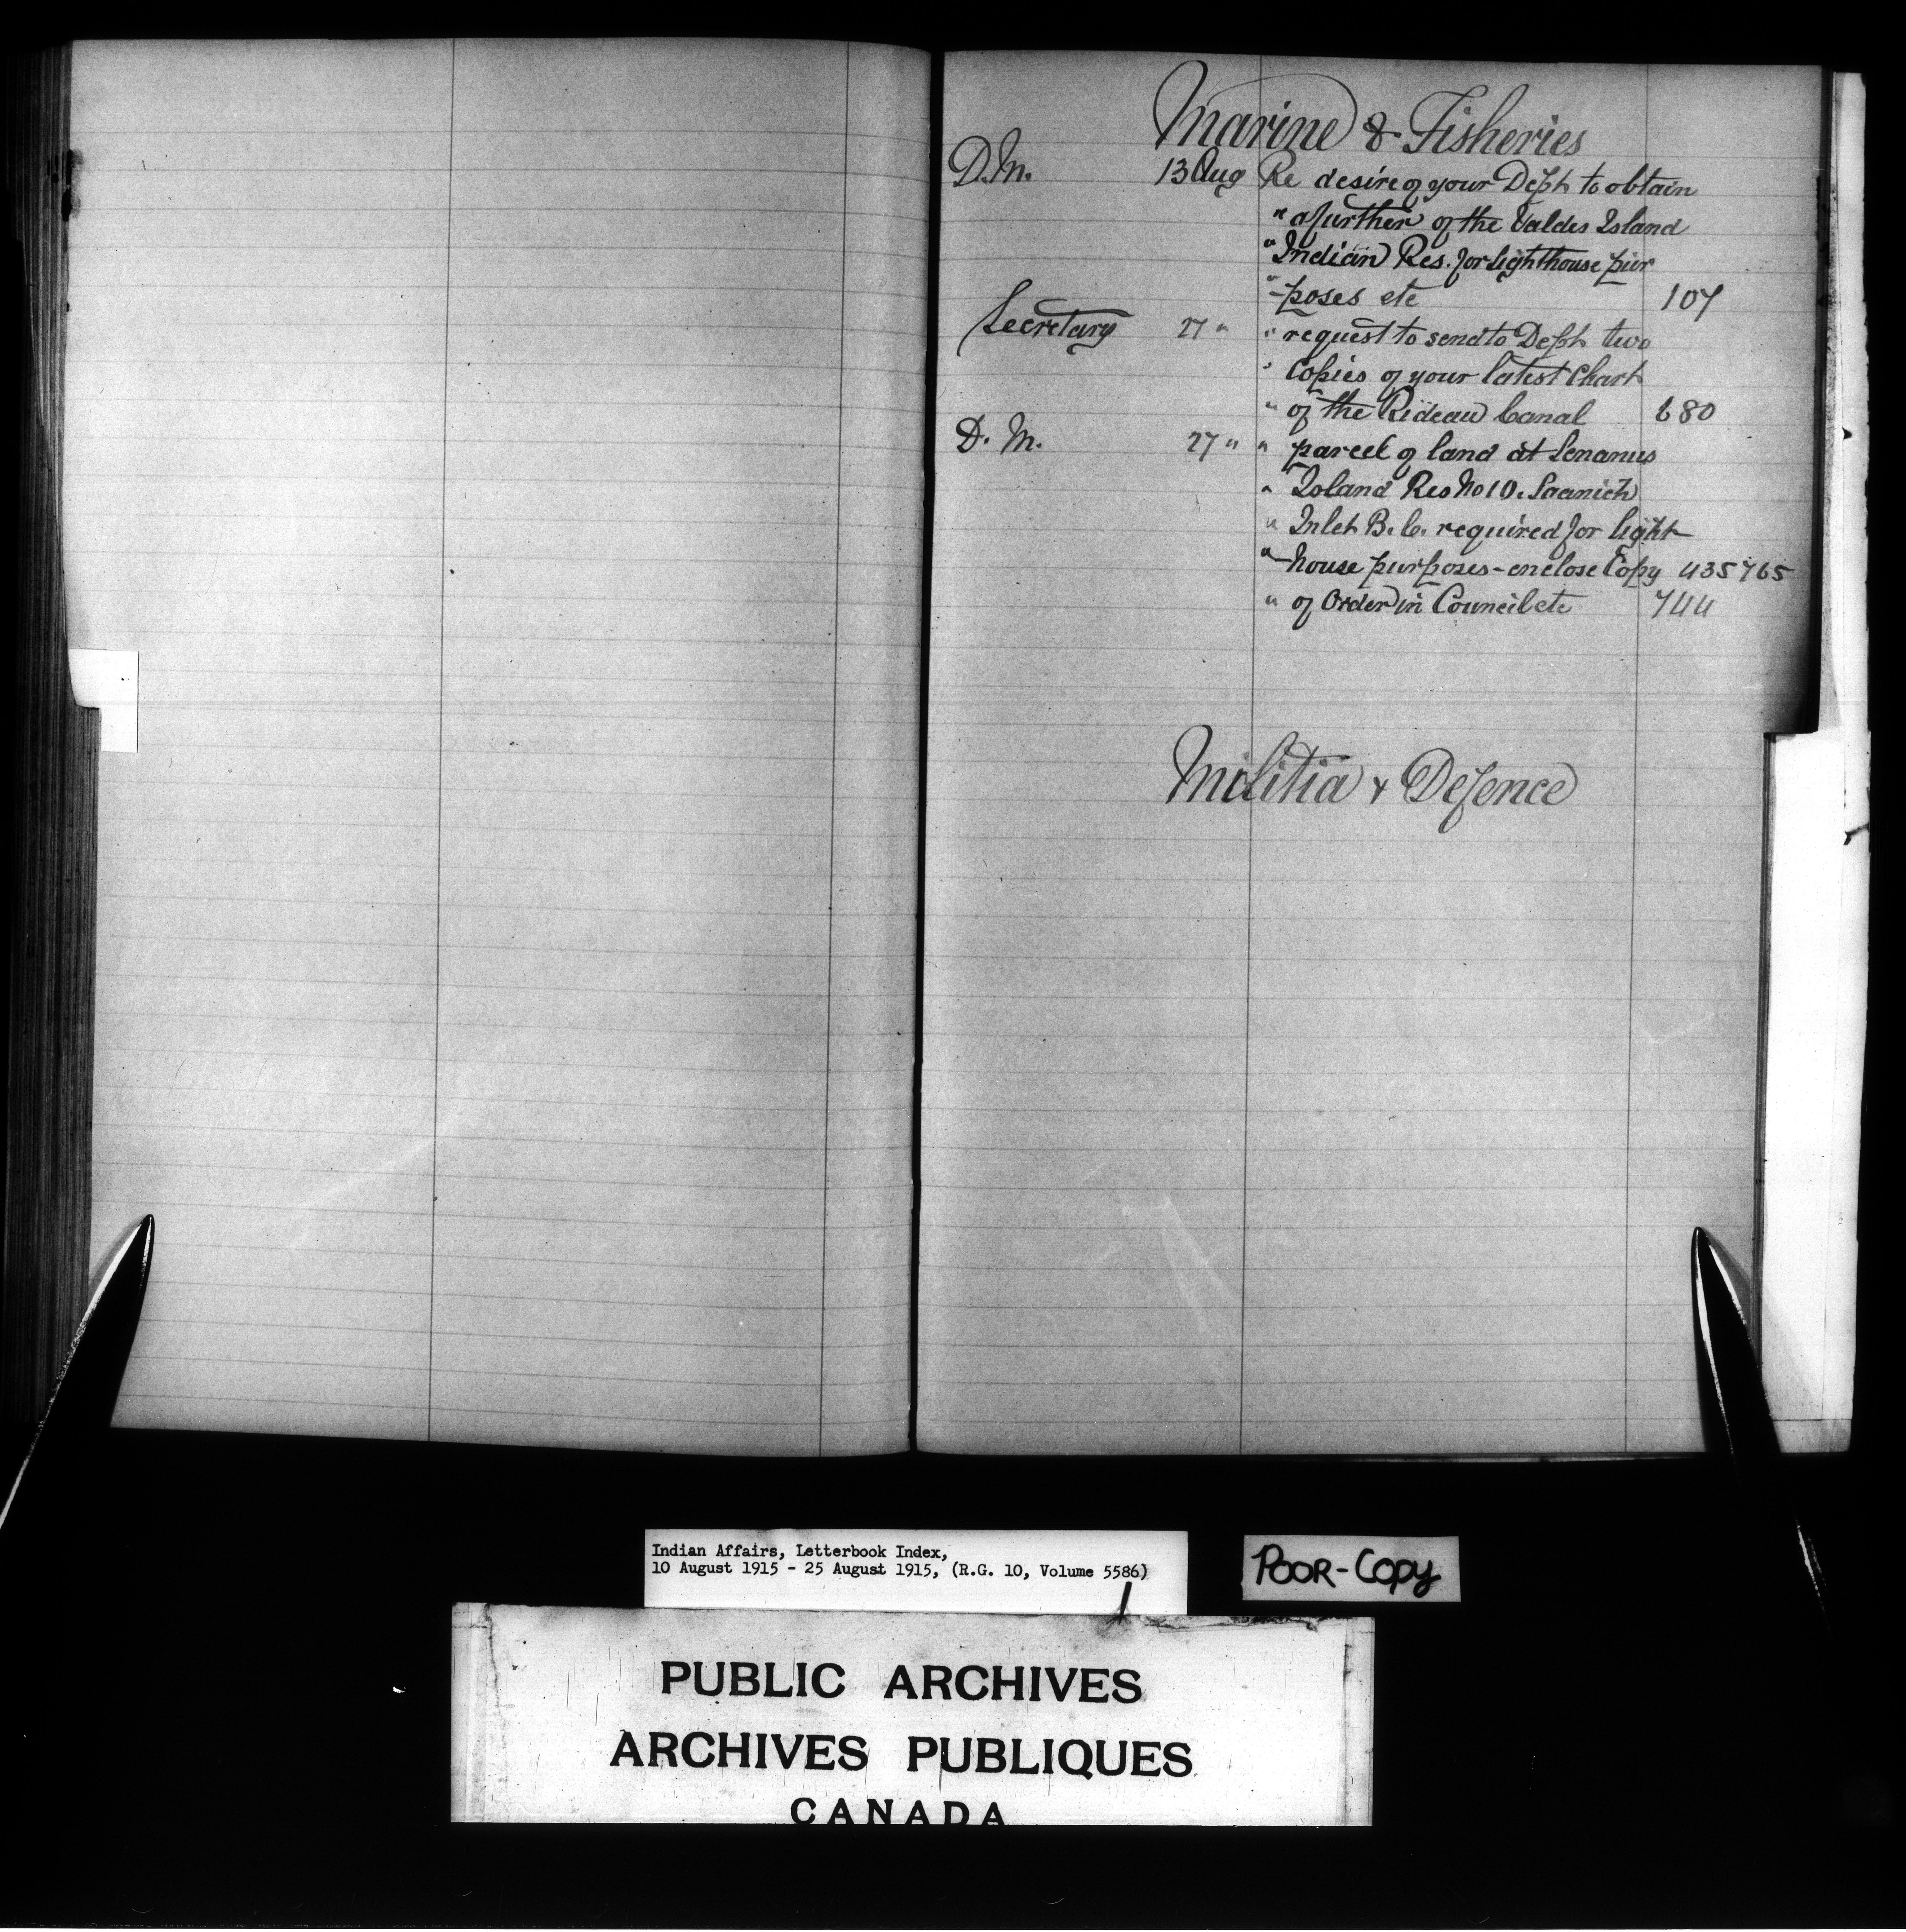 Marine & Fisheries
D.M. 13 Aug Re desire of your Dept to obtain
" a further of the Valdes Island
" Indian Res. for lighthouse pur
" -poses etc 107
Secretary 27 " " request to send to Dept two
" Copies of your latest Chart
" of the Rideau Canal 680
D. M. 27 " " parcel of land at Senanus
" Island Res No 10. Saanich
" Inlet B.C. required for light
" -house purposes - enclose Copy 435765
" of Order in Council etc 744
Militia & Defence
Indian Affairs, Letterbook Index,
10 August 1915 - 25 August 1915, (R.G. 10, Volume 5586)
POOR-COPY
PUBLIC ARCHIVES
ARCHIVES PUBLIQUES
CANADA